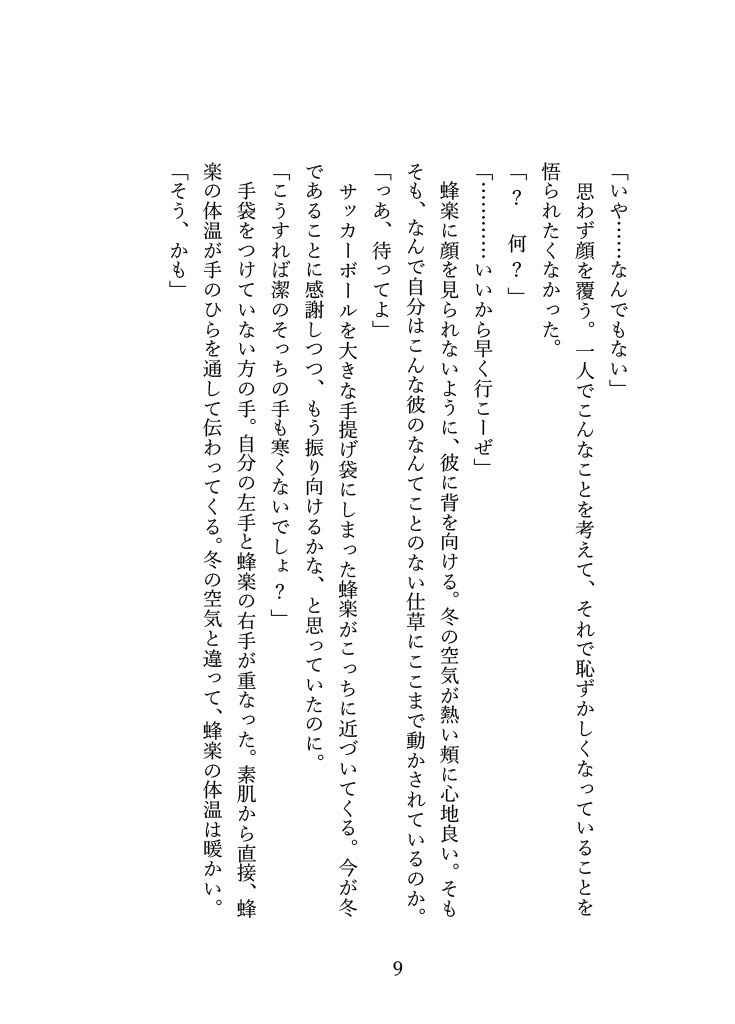 「いや……なんでもない」
　思わず顔を覆う。一人でこんなことを考えて、それで恥ずかしくなっていることを
悟られたくなかった。
「？　何？」
「…………いいから早く行こーぜ」
　蜂楽に顔を見られないように、彼に背を向ける。冬の空気が熱い頬に心地良い。そも
そも、なんで自分はこんな彼のなんてことのない仕草にここまで動かされているのか。
「っあ、待ってよ」
　サッカーボールを大きな手提げ袋にしまった蜂楽がこっちに近づいてくる。今が冬
であることに感謝しつつ、もう振り向けるかな、と思っていたのに。
「こうすれば潔のそっちの手も寒くないでしょ？」
　手袋をつけていない方の手。自分の左手と蜂楽の右手が重なった。素肌から直接、蜂
楽の体温が手のひらを通して伝わってくる。冬の空気と違って、蜂楽の体温は暖かい。
「そう、かも」
9